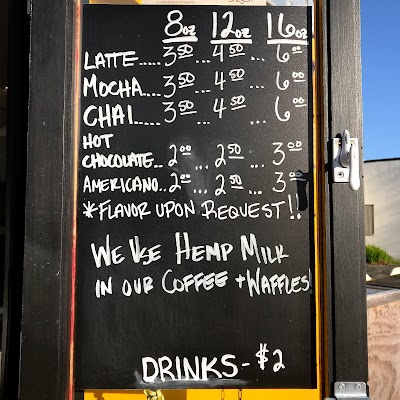 8oz 12oz 16oz
LATTE..... 3 50 ... 4 50 ... 6 00
MOCHA.... 3 50 ... 4 50 ... 6 00
CHAI..... 3 50 ... 4 50 ... 6 00
HOT
CHOCOLATE.. 2 00 ... 2 50 ... 3 00
AMERICANO.. 2 00 ... 2 50 ... 3 00
*FLAVOR UPON REQUEST!!
WE USE HEMP MILK
IN OUR COFFEE + WAFFLES!
DRINKS - $2